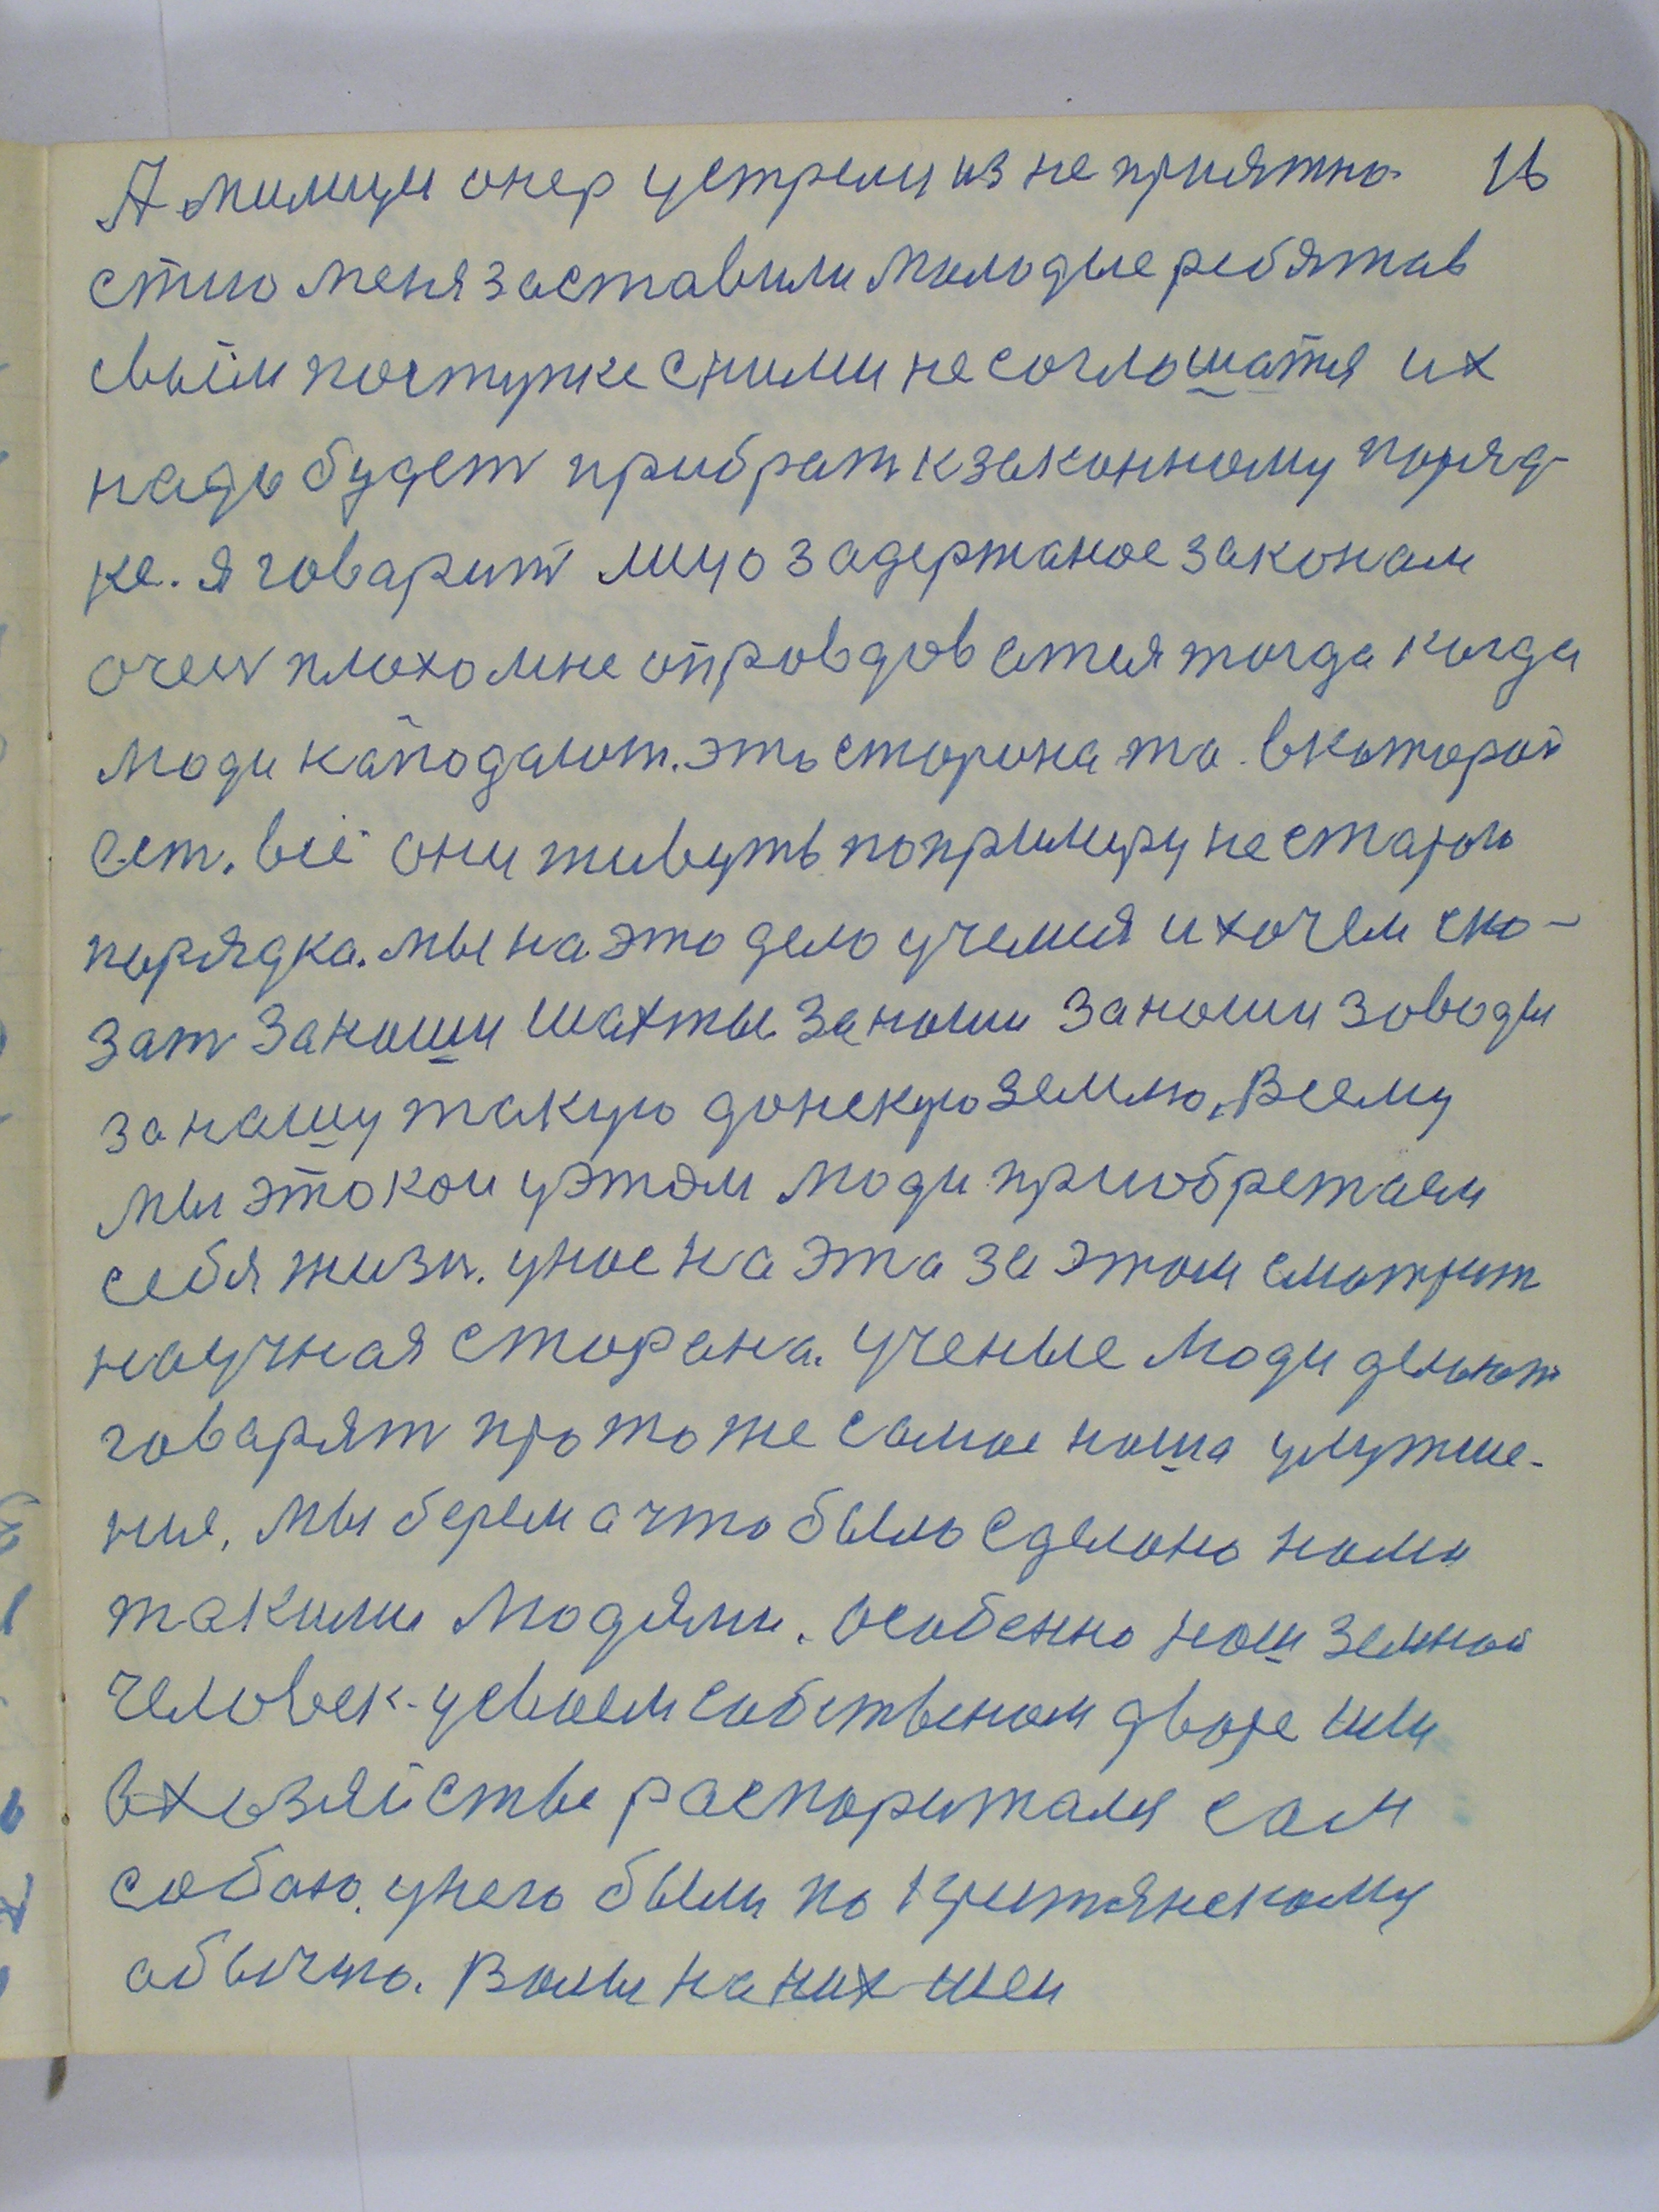 А милици опер устрели из не приятно- 16
стию меня заставили молодые ребята в
своём поступке с ними не соглошатся их
надо будет прибрат к законному поряд-
ке. я говарит лицо задержаное законам
очен плохо мне оправдоватся тогда когда
люди нападают. это сторона та в которой
ест. всё они живуть по примеру не старого
порядка. мы на это дело учемся и хочем ска-
зат за наши шахты за наши за наши заводы
за нашу такую донскую землю. Всему
мы этокои у этом люди приобретаем
себя жизн. у нас на эта за этом смотрит
научная сторона. ученые люди делают
говарят про то же самое наша улутше-
ние. мы берем а что было сделано нами
такими людями. особенно наш земной
человек у своем собственом дворе или
в хозяйстве распорижался сам
собою. у него были по крижянскому
обычию. Волы на них шеи